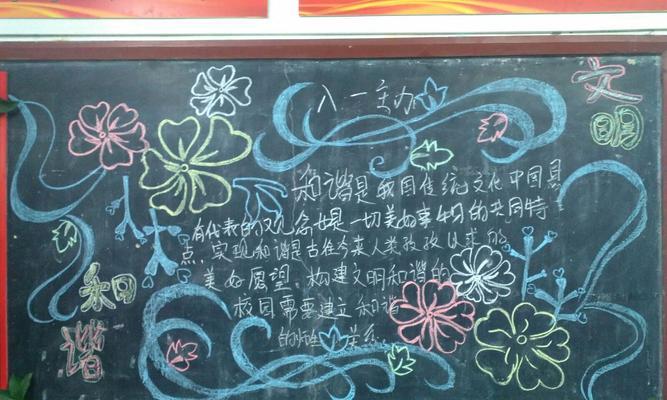 八一主办
文明
和谐是我国传统文化中国具
有代表的观念也是一切美好事物的共同特
点,实现和谐是古往今来人类孜孜以求的
美好愿望,构建文明和谐的
校园需要建立和谐
的师生关系。
和
谐